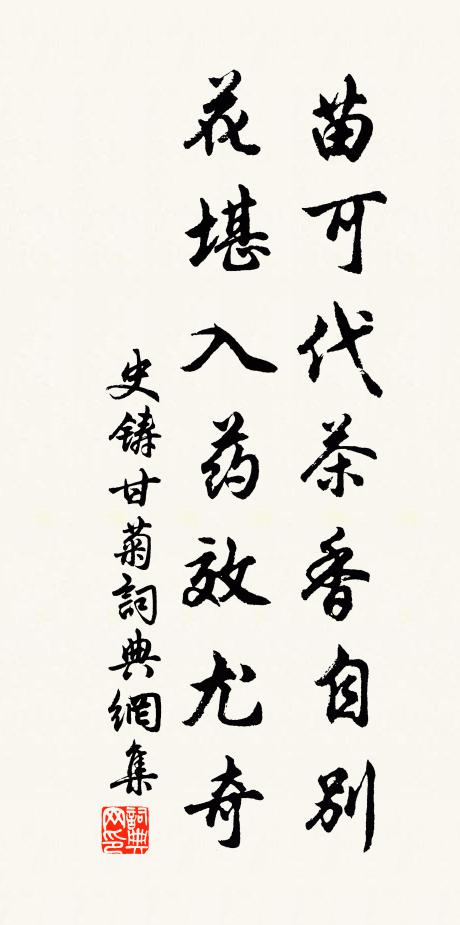 苗可代茶香自别
花堪入药效尤奇
史鑄甘菊詞典網集
詞典
网印